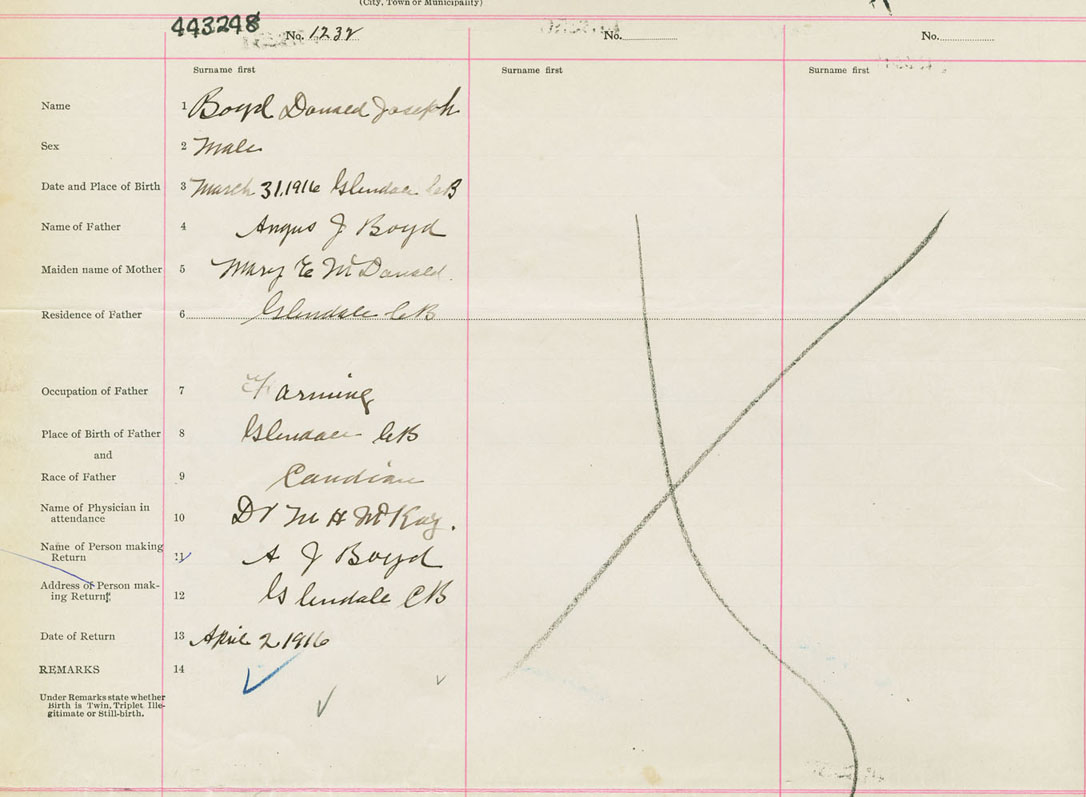 (City, Town or Municipality)
443248
No. 1232
No.
No.
Surname first
Surname first
Surname first
Name 1 Boyd Donald Joseph
Sex 2 Male
Date and Place of Birth 3 March 31, 1916 Glendale C.B
Name of Father 4 Angus J Boyd
Maiden name of Mother 5 Mary E McDonald.
Residence of Father 6 Glendale C.B
Occupation of Father 7 Farming
Place of Birth of Father 8 Glendale C.B
and
Race of Father 9 Candian
Name of Physician in
attendance 10 Dr M H McKay.
Name of Person making
Return 11 A J Boyd
Address of Person mak-
ing Return 12 Glendale CB
Date of Return 13 April 2 1916
REMARKS 14
Under Remarks state whether
Birth is Twin, Triplet Ille-
gitimate or Still-birth.